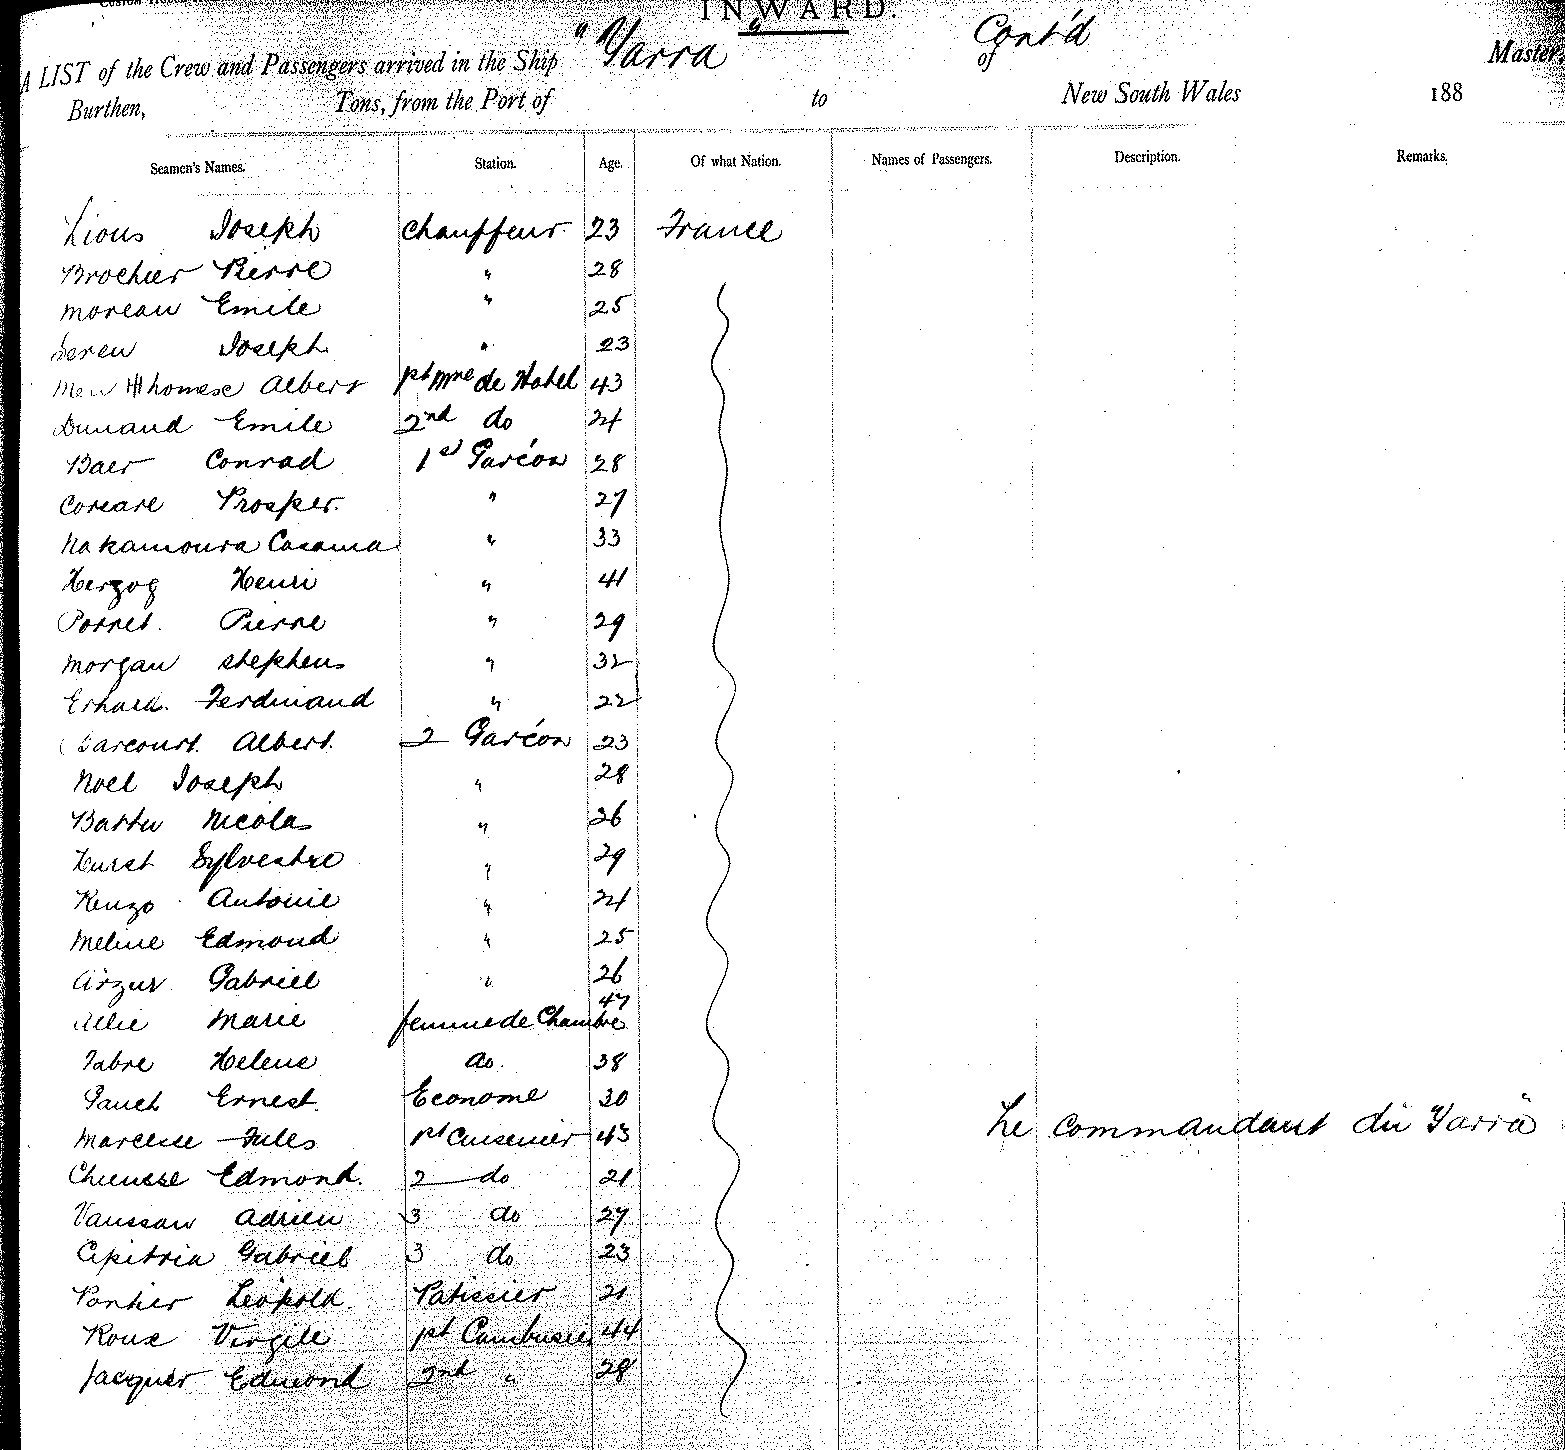 INWARD.
A LIST of the Crew and Passengers arrived in the Ship "Yarra" Cont'd of Master,
Burthen, Tons, from the Port of to New South Wales 188
Seamen's Names. Station. Age. Of what Nation. Names of Passengers. Description. Remarks.
Lious Joseph chauffeur 23 France
Brochier Pierre " 28
Moreau Emile " 25
Seren Joseph " 23
Albert pt Mre de Hotel 43
Dunand Emile 2nd do 24
Baer Conrad 1st Garçon 28
Corsare Prosper. " 27
Nakamoura Casama " 33
Herzog Henri " 41
Porret. Pierre " 29
Morgan Stephens " 32
Erhard. Ferdinand " 22
Harcourt. Albert. 2 Garçon 23
Noel Joseph " 28
Nicolas " 26
Hurst Sylvestre " 29
Renzo Antoine " 24
Meline Edmond " 25
Arzur Gabriel " 26
Marie femme de Chambre 47
Fabre Helene do 38
Gauch Ernest. Econome 30
Jules pt Cuisenier 43
Le commandant du Yarra
Edmond. 2 do 21
Vaussan Adrien 3 do 27
Cipitria Gabriel 3 do 23
Pontier Leopold Patissier 21
Roux Virgile pt Cambusier 44
Jacquer Edmond 2nd " 28